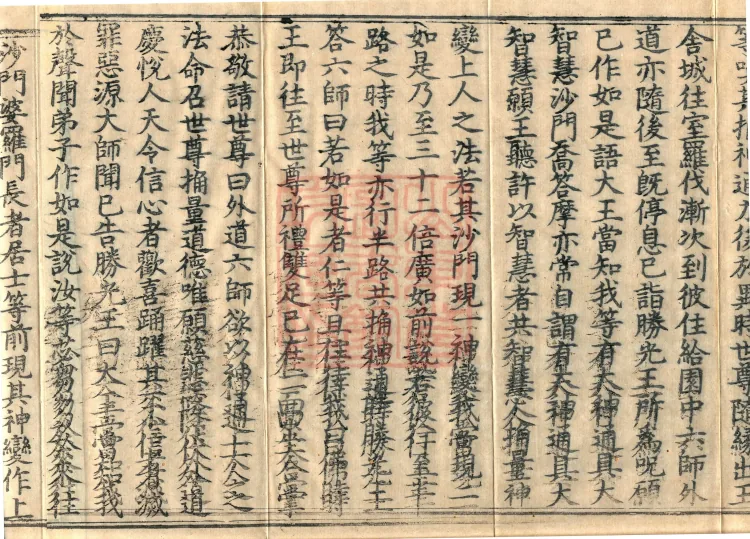 舍城往室羅伐漸次到彼住給園中六師外
道亦隨後至既停息已詣勝光王所為呪願
已作如是語大王當知我等有大神通具大
智慧沙門喬答摩亦常自謂有大神通具大
智慧願王聽許以智慧者共智慧人捔量神
變上人之法若其沙門現一神變我當現二
如是乃至三十二倍廣如前說若彼行至半
路之時我等亦行半路共捔神通時勝光王
答六師曰若如是者仁等且住待我白佛時
王即往至世尊所禮雙足已在一面坐合掌
恭敬請世尊曰外道六師欲以神通上人之
法命召世尊捔量道德唯願慈悲降伏外道
慶悅人天令信心者歡喜踊躍其不信者滅
罪惡源大師聞已告勝光王曰大王當知我
於聲聞弟子作如是說汝等苾芻勿於來往
沙門婆羅門長者居士等前現其神變作上